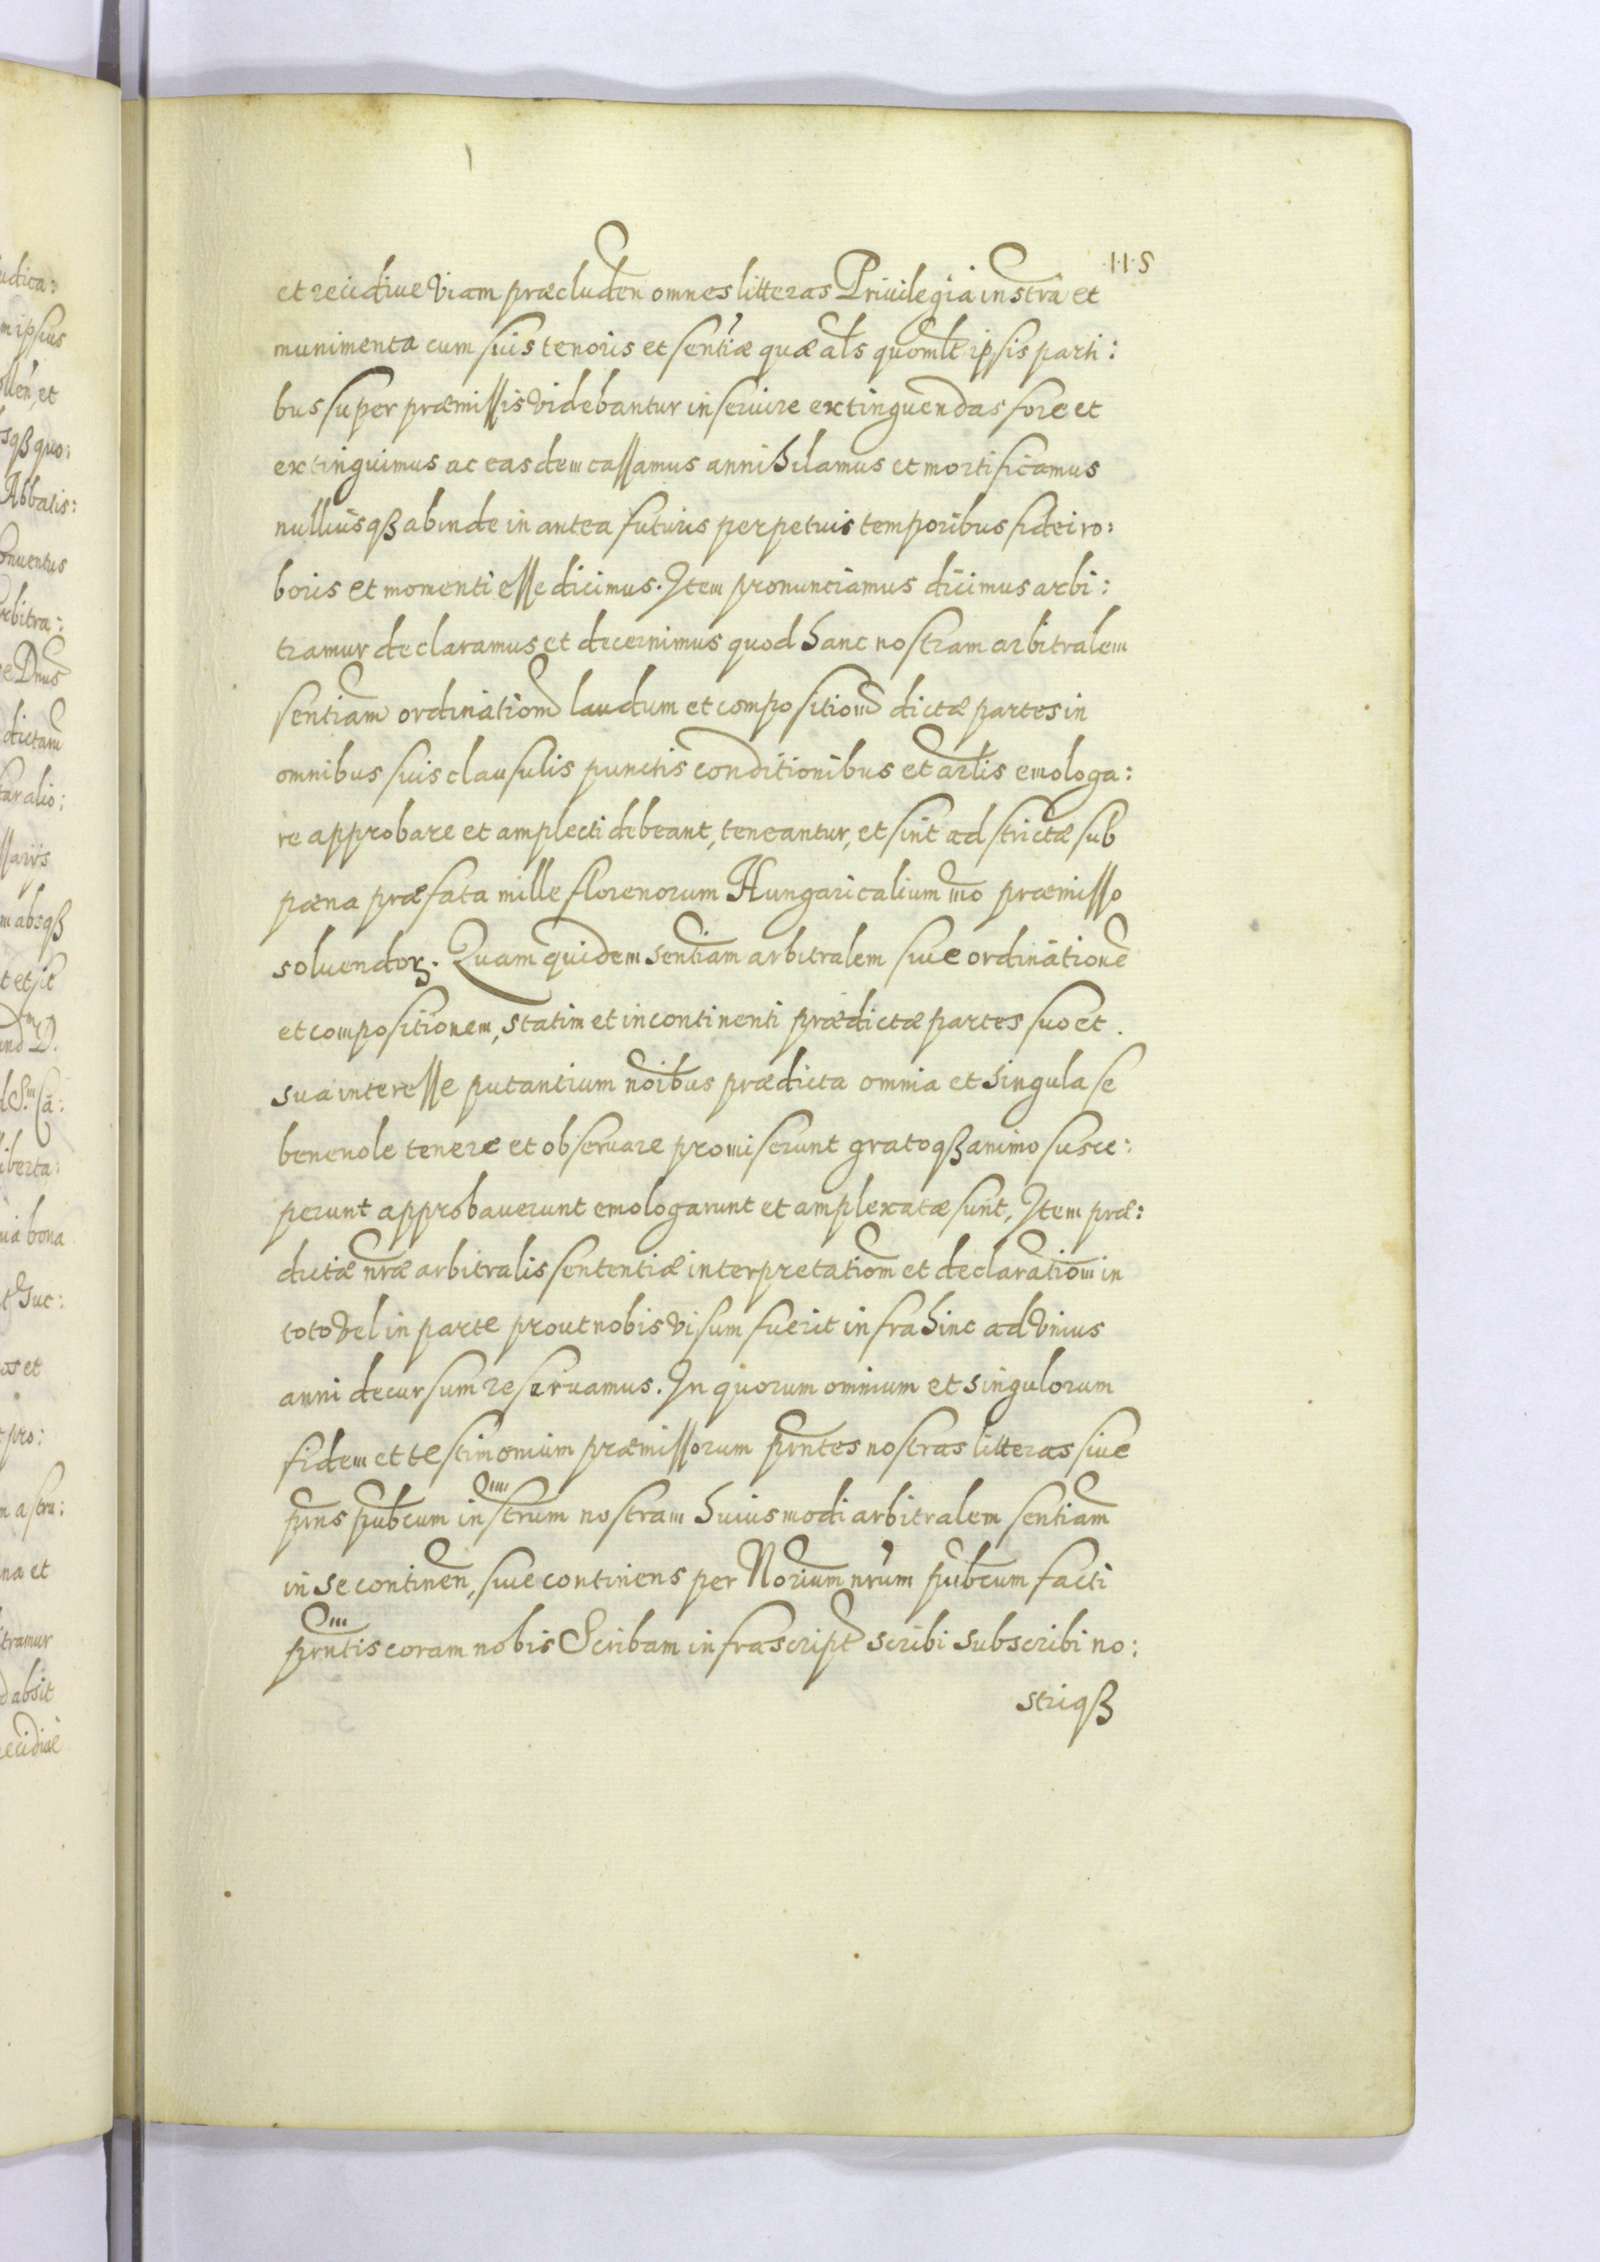 115
et recidiue viam præcluden omnes litteras Priuilegia instra et
munimenta cum suis tenoris et sentiæ quæ als quomlt ipsis parti:
bus super præmissis videbantur inseruire extinguendas fore et
extinguimus ac easdem cassamus annihilamus et mortificamus
nulliusqß abinde in antea futuris perpetuis temporibus fidei ro:
boris et momenti esse dicimus. Item pronunciamus dicimus arbi:
tramur declaramus et decernimus quod hanc nostram arbitralem
sentiam ordinatiom laudum et compositiom dictæ partes in
omnibus suis clausulis punctis conditionibus et artlis emologa:
re approbare et amplecti debeant, teneantur, et sint adstrictæ sub
pæna præfata mille florenorum Hungaricalium mo præmisso
soluendoꝝ. Quam quidem sentiam arbitralem siue ordinatione
et compositionem, statim et incontinenti prædictæ partes suo et
sua interesse putantium noibus prædicta omnia et singula se
beneuole tenere et obseruare promiserunt gratoqß animo susce:
perunt approbauerunt emologarunt et amplexatæ sunt, Item præ:
dictæ nræ arbitralis sententiæ interpretatiom et declaratiom in
toto vel in parte prout nobis visum fuerit infra hinc ad vnius
anni decursum reseruamus. In quorum omnium et singulorum
fidem et testimonium præmissorum prntes nostras litteras siue
prns pubcum instrum nostram huiusmodi arbitralem sentiam
in se continen, siue continens per Norium nrum pubcum facti
prntis coram nobis Scribam infrascript scribi subscribi no:
striqß
udica:
m ipsius
ollen, et
sqß quo:
Abbatis:
onuentus
rbitra:
e Dnus
dictam
tar alio:
ssarijs
m absqß
t et sit
iberta:
uà bona
os et
t pro:
m astru:
na et
tramur
d absit